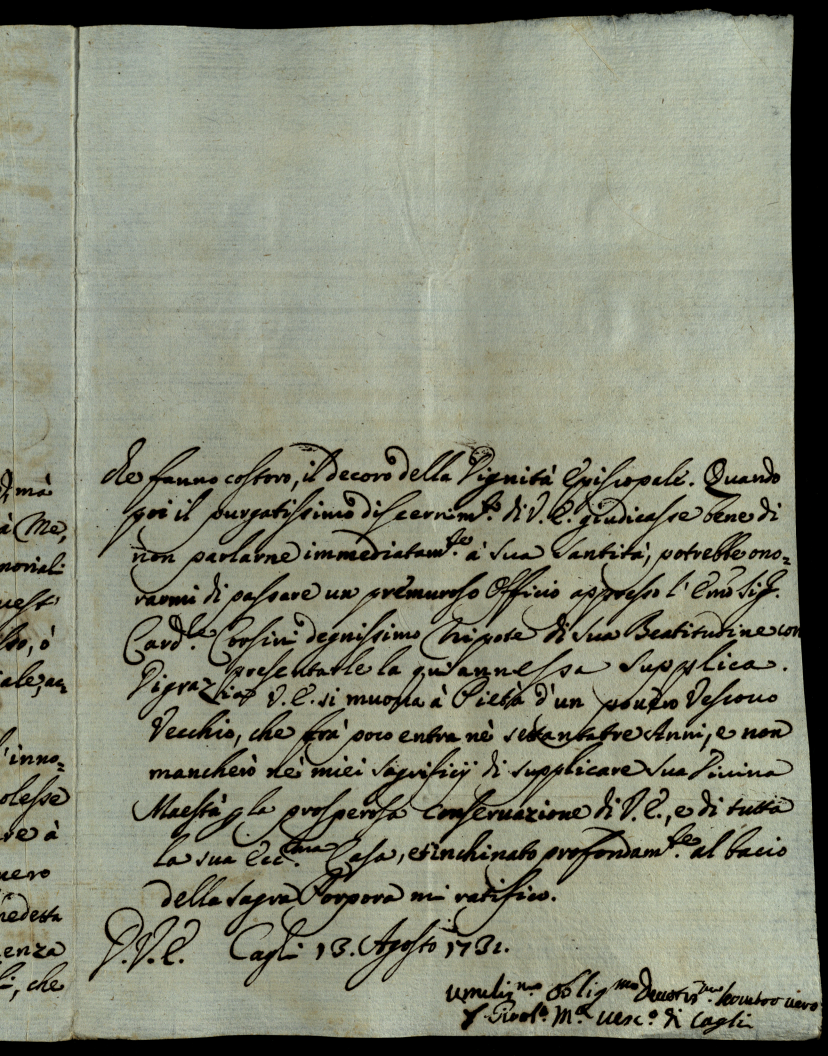 mà
à Me,
moriali
quest'
sto, ò
iale, ac=
l'inno=
olesse
ere à
nero
nedetta
enza
li, che
che fanno costoro, il decoro della Dignità Episcopale. Quando
poi il purgatissimo discernim.to di V. E. giudicasse bene di
non parlarne immediatam.te à Sua Santità, potrebbe ono=
rarmi di passare un premuroso Officio appresso l'Emo Sig.
Card.le Corsini degnissimo Nipote di Sua Beatitudine con
presentarle la qui annessa supplica.
Digrazia V. E. si muova à Pietà d'un povero Vescovo
Vecchio, che frà poco entra nè settantatre Anni, e non
mancherò nè miei Sagrificij di supplicare Sua Divina
Maestà p la prosperosa conservazione di V. E., e di tutta
la sua Ecc.ma Casa, et inchinato profondam.te al bacio
della Sagra Porpora mi ratifico.
D. V. E. Cagli 13. Agosto 1731.
Umiliss.mo Oblig.mo Devotis.mo Servitor vero
F. Girol.o M.a Vesc.o di Cagli